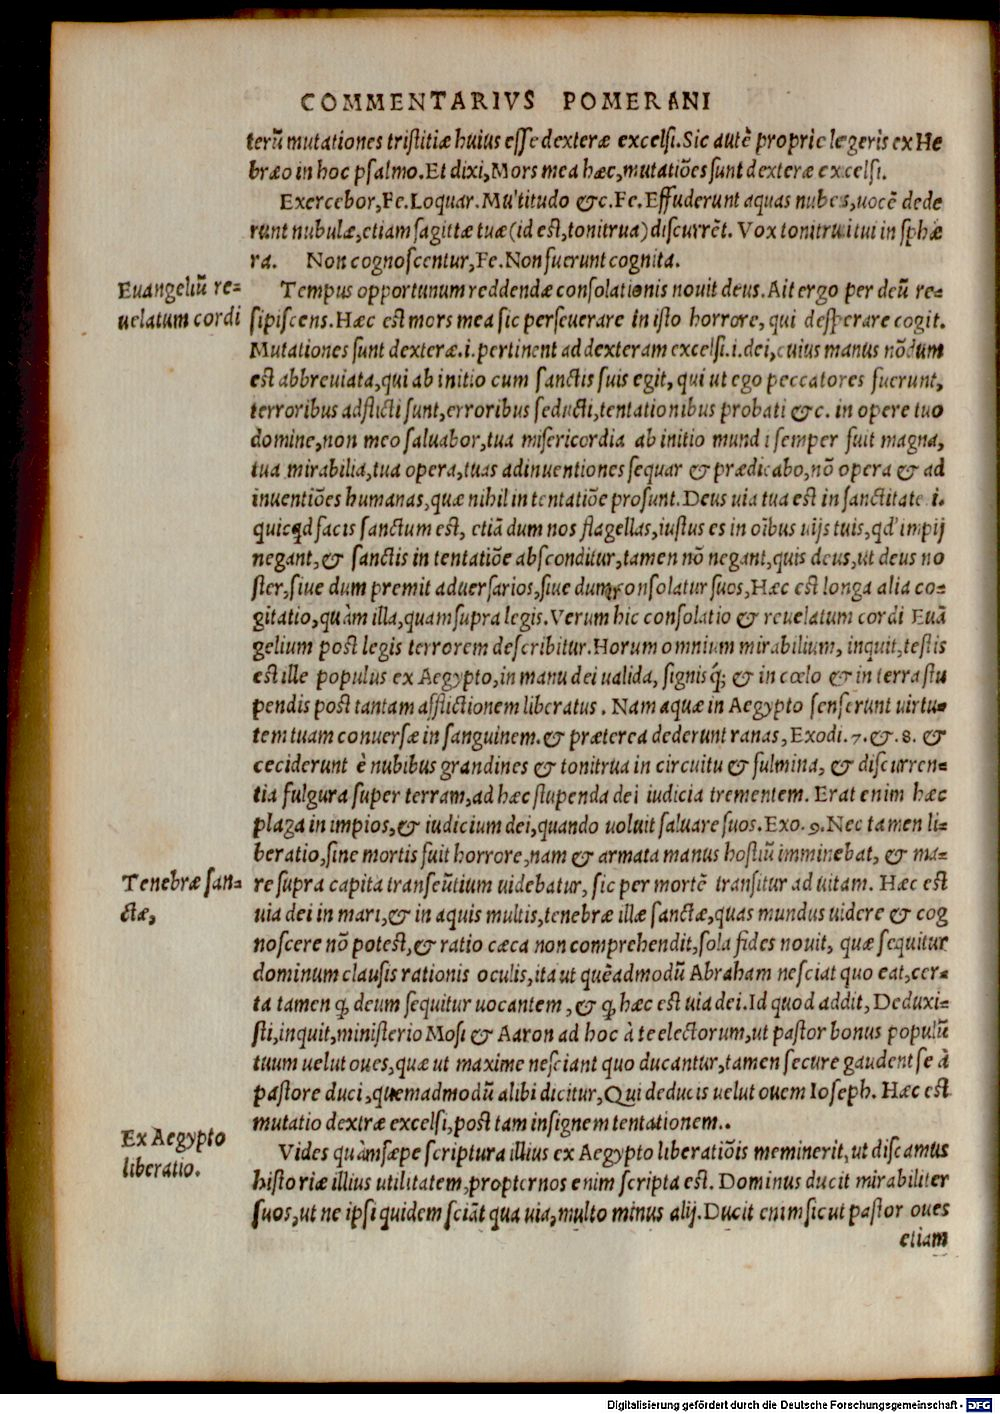 COMMENTARIVS POMERANI
terũ mutationes tristitiæ huius esse dexteræ excelsi. Sic autẽ proprie legeris ex He
bræo in hoc psalmo. Et dixi, Mors mea hæc, mutatiões sunt dexteræ excelsi.
Exercebor, Fe. Loquar. Multitudo &c. Fe. Effuderunt aquas nubes, uocẽ dede
runt nubulæ, etiam sagittæ tuæ (id est, tonitrua) discurrẽt. Vox tonitrui tui in sphæ
ra. Non cognoscentur, Fe. Non fuerunt cognita.
Euangeliũ re=
uelatum cordi
Tempus opportunum reddendæ consolationis nouit deus. Ait ergo per deũ re=
sipiscens. Hæc est mors mea sic perseuerare in isto horrore, qui desperare cogit.
Mutationes sunt dexteræ .i. pertinent ad dexteram excelsi .i. dei, cuius manus nõdum
est abbreuiata, qui ab initio cum sanctis suis egit, qui ut ego peccatores fuerunt,
terroribus adflicti sunt, erroribus seducti, tentationibus probati &c. in opere tuo
domine, non meo saluabor, tua misericordia ab initio mundi semper fuit magna,
tua mirabilia, tua opera, tuas adinuentiones sequar & prædicabo, nõ opera & ad
inuentiões humanas, quæ nihil in tentatiõe prosunt. Deus uia tua est in sanctitate .i.
quicqd facis sanctum est, etiã dum nos flagellas, iustus es in oĩbus uijs tuis, qd' impij
negant, & sanctis in tentatiõe absconditur, tamen nõ negant, quis deus, ut deus no
ster, siue dum premit aduersarios, siue dum consolatur suos, Hæc est longa alia co=
gitatio, quàm illa, quam supra legis. Verum hic consolatio & reuelatum cordi Euã
gelium post legis terrorem describitur. Horum omnium mirabilium, inquit, testis
est ille populus ex Aegypto, in manu dei ualida, signisq́; & in cœlo & in terra stu
pendis post tantam afflictionem liberatus. Nam aquæ in Aegypto senserunt uirtu=
tem tuam conuersæ in sanguinem. & præterea dederunt ranas, Exodi. 7. &. 8. &
ceciderunt è nubibus grandines & tonitrua in circuitu & fulmina, & discurren=
tia fulgura super terram, ad hæc stupenda dei iudicia trementem. Erat enim hæc
plaga in impios, & iudicium dei, quando uoluit saluare suos. Exo. 9. Nec tamen li=
beratio, sine mortis fuit horrore, nam & armata manus hostiũ imminebat, & ma=
Tenebræ san=
ctæ,
re supra capita transeũtium uidebatur, sic per mortẽ transitur ad uitam. Hæc est
uia dei in mari, & in aquis multis, tenebræ illæ sanctæ, quas mundus uidere & cog
noscere nõ potest, & ratio cæca non comprehendit, sola fides nouit, quæ sequitur
dominum clausis rationis oculis, ita ut quẽadmodũ Abraham nesciat quo eat, cer=
ta tamen q̃ deum sequitur uocantem, & q̃ hæc est uia dei. Id quod addit, Deduxi=
sti, inquit, ministerio Mosi & Aaron ad hoc à te electorum, ut pastor bonus populũ
tuum uelut oues, quæ ut maxime nesciant quo ducantur, tamen secure gaudent se à
pastore duci, quemadmodũ alibi dicitur, Qui deducis uelut ouem Ioseph. Hæc est
mutatio dextræ excelsi, post tam insignem tentationem..
Ex Aegypto
liberatio.
Vides quàm sæpe scriptura illius ex Aegypto liberatiõis meminerit, ut discamus
historiæ illius utilitatem, propter nos enim scripta est. Dominus ducit mirabiliter
suos, ut ne ipsi quidem sciãt qua uia, multo minus alij. Ducit enim sicut pastor oues
etiam
Digitalisierung gefördert durch die Deutsche Forschungsgemeinschaft - DFG